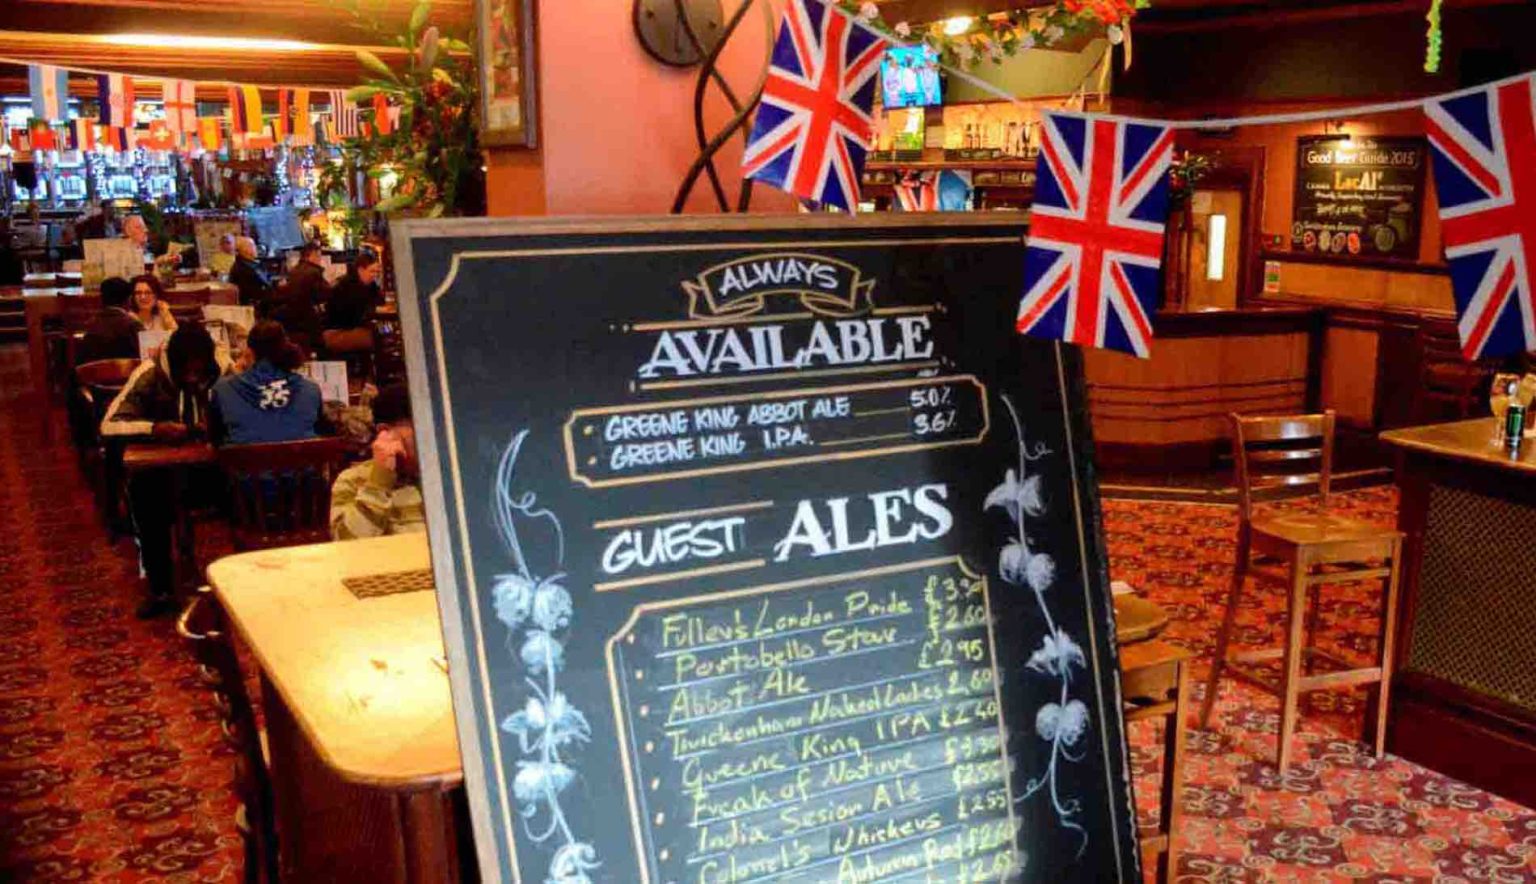 ALWAYS
AVAILABLE
• GREENE KING ABBOT ALE 5.0%
• GREENE KING I.P.A. 3.6%
GUEST ALES
• Fuller's London Pride £3.30
• Portobello Star £2.60
• Abbot Ale £2.95
• Twickenham Naked Ladies 2.60
• Greene King IPA £2.40
• Freak of Nature £3.30
• India Session Ale £2.55
• Colonel's Whiskers £2.55
Autumn Red £2.60
Good Beer Guide 2015
LocAl
35